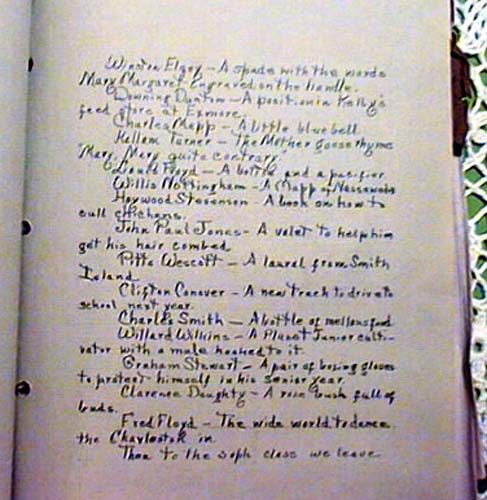 Winston Elgey - A spade with the words
Mary Margaret Engraved on the handle.
Downing Dunton - A position in Kelby's
feed store at Exmore.
Charles Mepp - A little blue bell
Kellam Turner - The Mother goose rhyme
"Mary, Mary quite contrary"
Donald Floyd - A bottle and a pacifier
Willis Nottingham - A Mapp of Nassawadox
Haywood Stevenson - A book on how to
cull chickens.
John Paul Jones - A valet to help him
get his hair combed
Pitts Wescott - A laurel from Smith
Island
Clifton Conover - A new truck to drive to
school next year.
Charles Smith - A bottle of mellons food
Willard Wilkins - A Planet Junior culti-
vator with a mule hooked to it.
Graham Stewart - A pair of boxing gloves
to protect himself in his senior year.
Clarence Doughty - A rose bush full of
buds.
Fred Floyd - The wide world to dance
the Charleston in.
Then to the soph class we leave